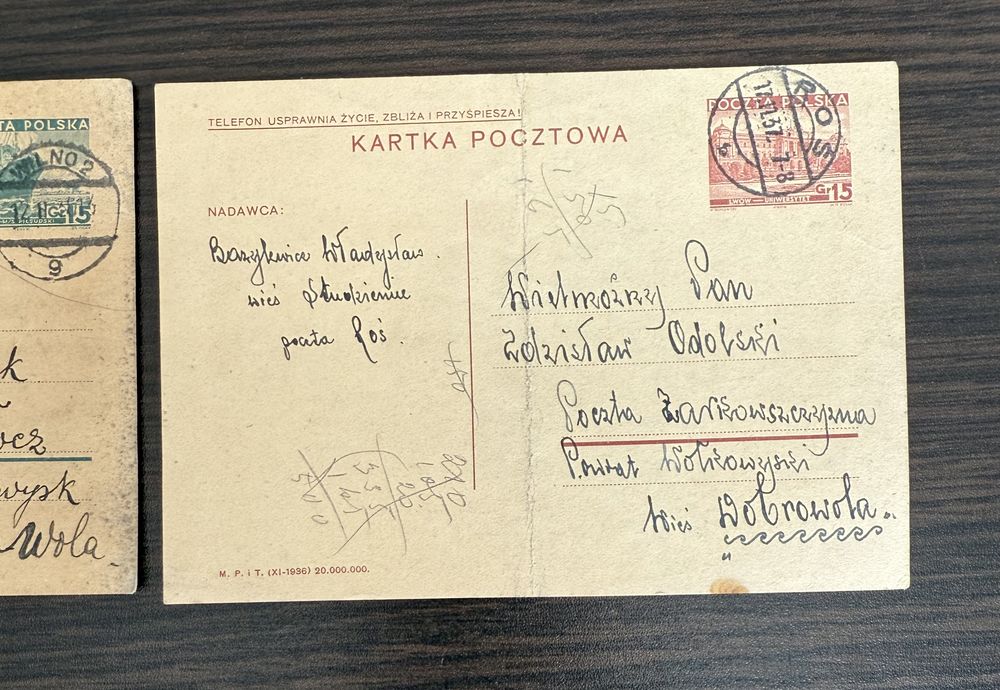 TA POLSKA
WILNO 2
Gr 15
M-S. PIŁSUDSKI
9
k
ocz
wysk
Wola
TELEFON USPRAWNIA ŻYCIE, ZBLIŻA I PRZYŚPIESZA!
KARTKA POCZTOWA
POCZTA POLSKA
ROŚ
37. 7-8
b
Gr 15
LWÓW — UNIWERSYTET
NADAWCA:
Bazylewicz Władysław.
wieś Studzienie
poczta Roś.
Wielmożny Pan
Zdzisław Odolski
Poczta Żarkowszczyzna
Powiat Wołkowyski
Wieś Dobrowola.
M. P. i T. (XI-1936) 20.000.000.